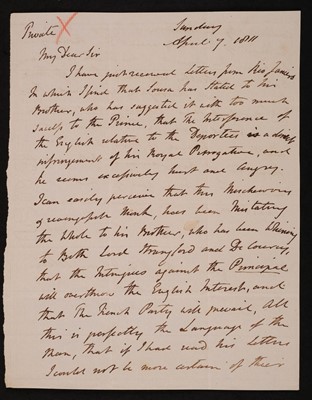 Private X
Sunday
April 7. 1811
My Dear Sir
I have just received Letters from Rio Janeiro
In which I find that Sousa has stated to his
Brother, who has suggested it with too much
success to the Prince, that the Interference of
the English relative to the Deportees is a direct
infringement of his Royal Prerogative, and
he seems excessively hurt and angry.
I can easily perceive that this Mischievous
& revengeful Monk, has been Mistating
the whole to his Brother, who has been whining
to Both Lord Strangford and De Courcy,
that the Intrigues against the Principal
will overthrow the English Interest, and
that the French Party will prevail, All
this is perfectly the Language of the
Man, that if I had read his Letters
I could not be more certain of their